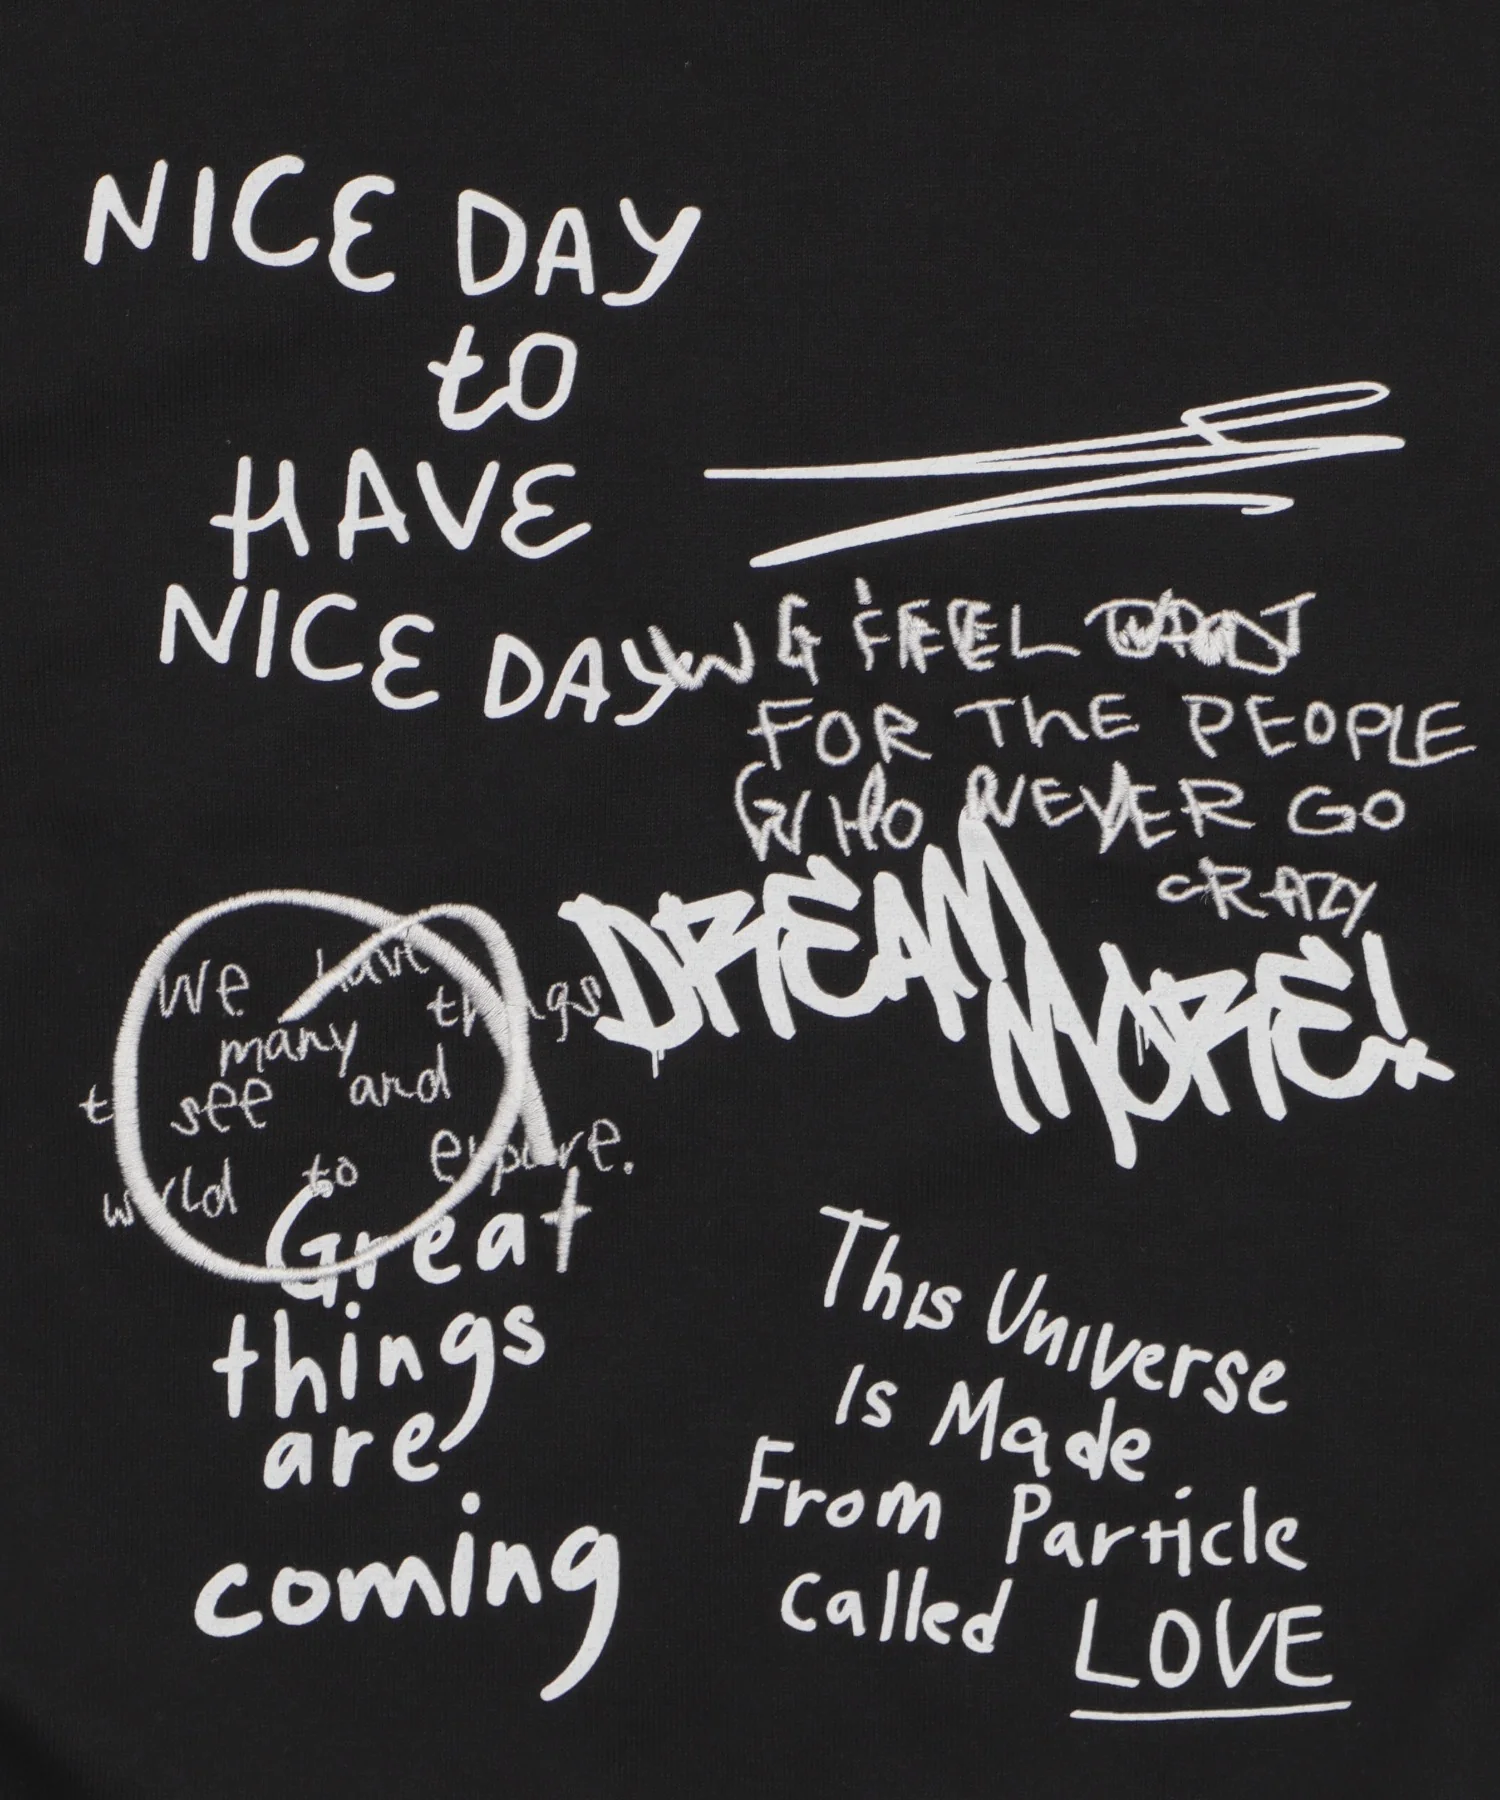 NICE DAY
to
HAVE
NICE DAY
FEEL
FOR THE PEOPLE
WHO NEVER GO
CRAZY
DREAM
MORE!
We have
many things
to see and
world to explore.
Great
things
are
coming
This Universe
Is Made
From Particle
called LOVE